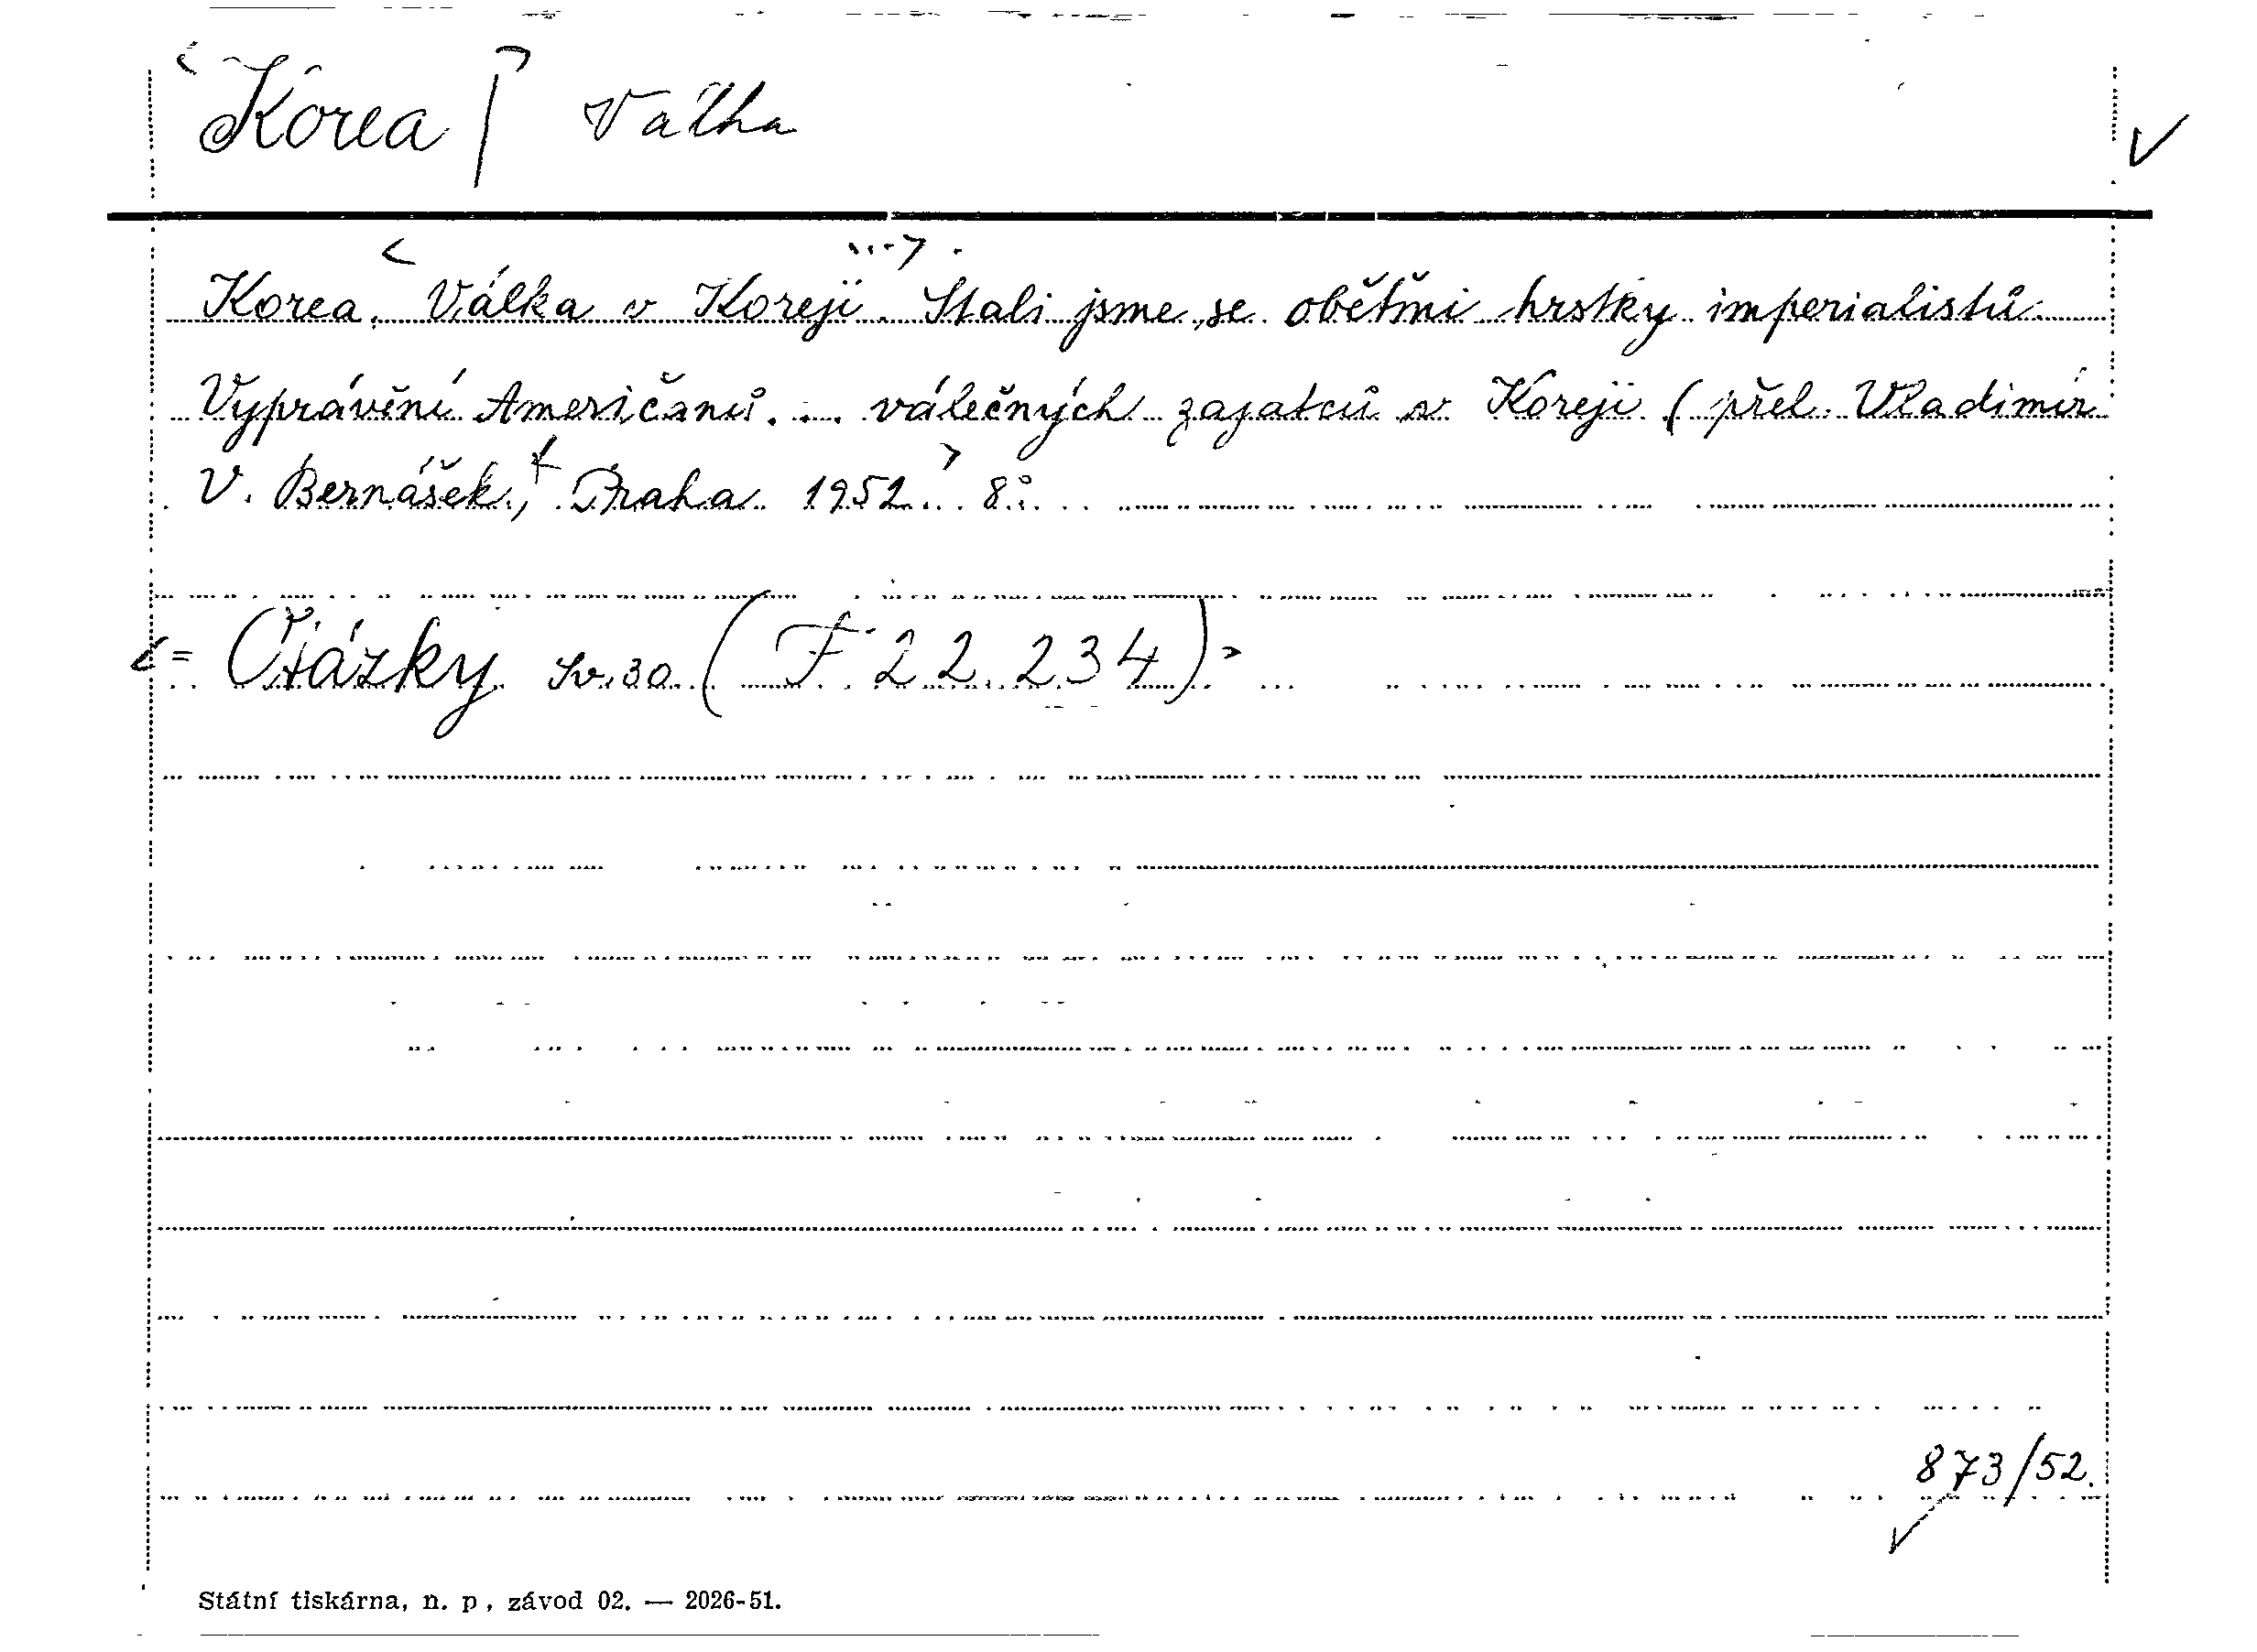 Korea | Válka
Korea. Válka v Koreji. Stali jsme se obětmi hrstky imperialistů.
Vyprávění Američanů ... válečných zajatců v Koreji (přel. Vladimír
V. Bernášek, Praha 1952. 8°.
= Otázky sv. 30 (F 22.234)
873/52.
Státní tiskárna, n. p., závod 02. — 2026-51.